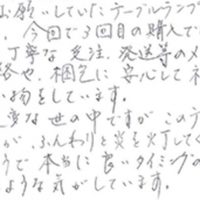 お願いしていたテーブルランプ
、今回で3回目の購入で
丁寧な受注、発送等のメ
絡や、梱包に安心してネ
い物をしています。
変な世の中ですがこのテ
が、ふんわりと炎を灯してく
うで本当に良いタイミングの
ような気がしています。